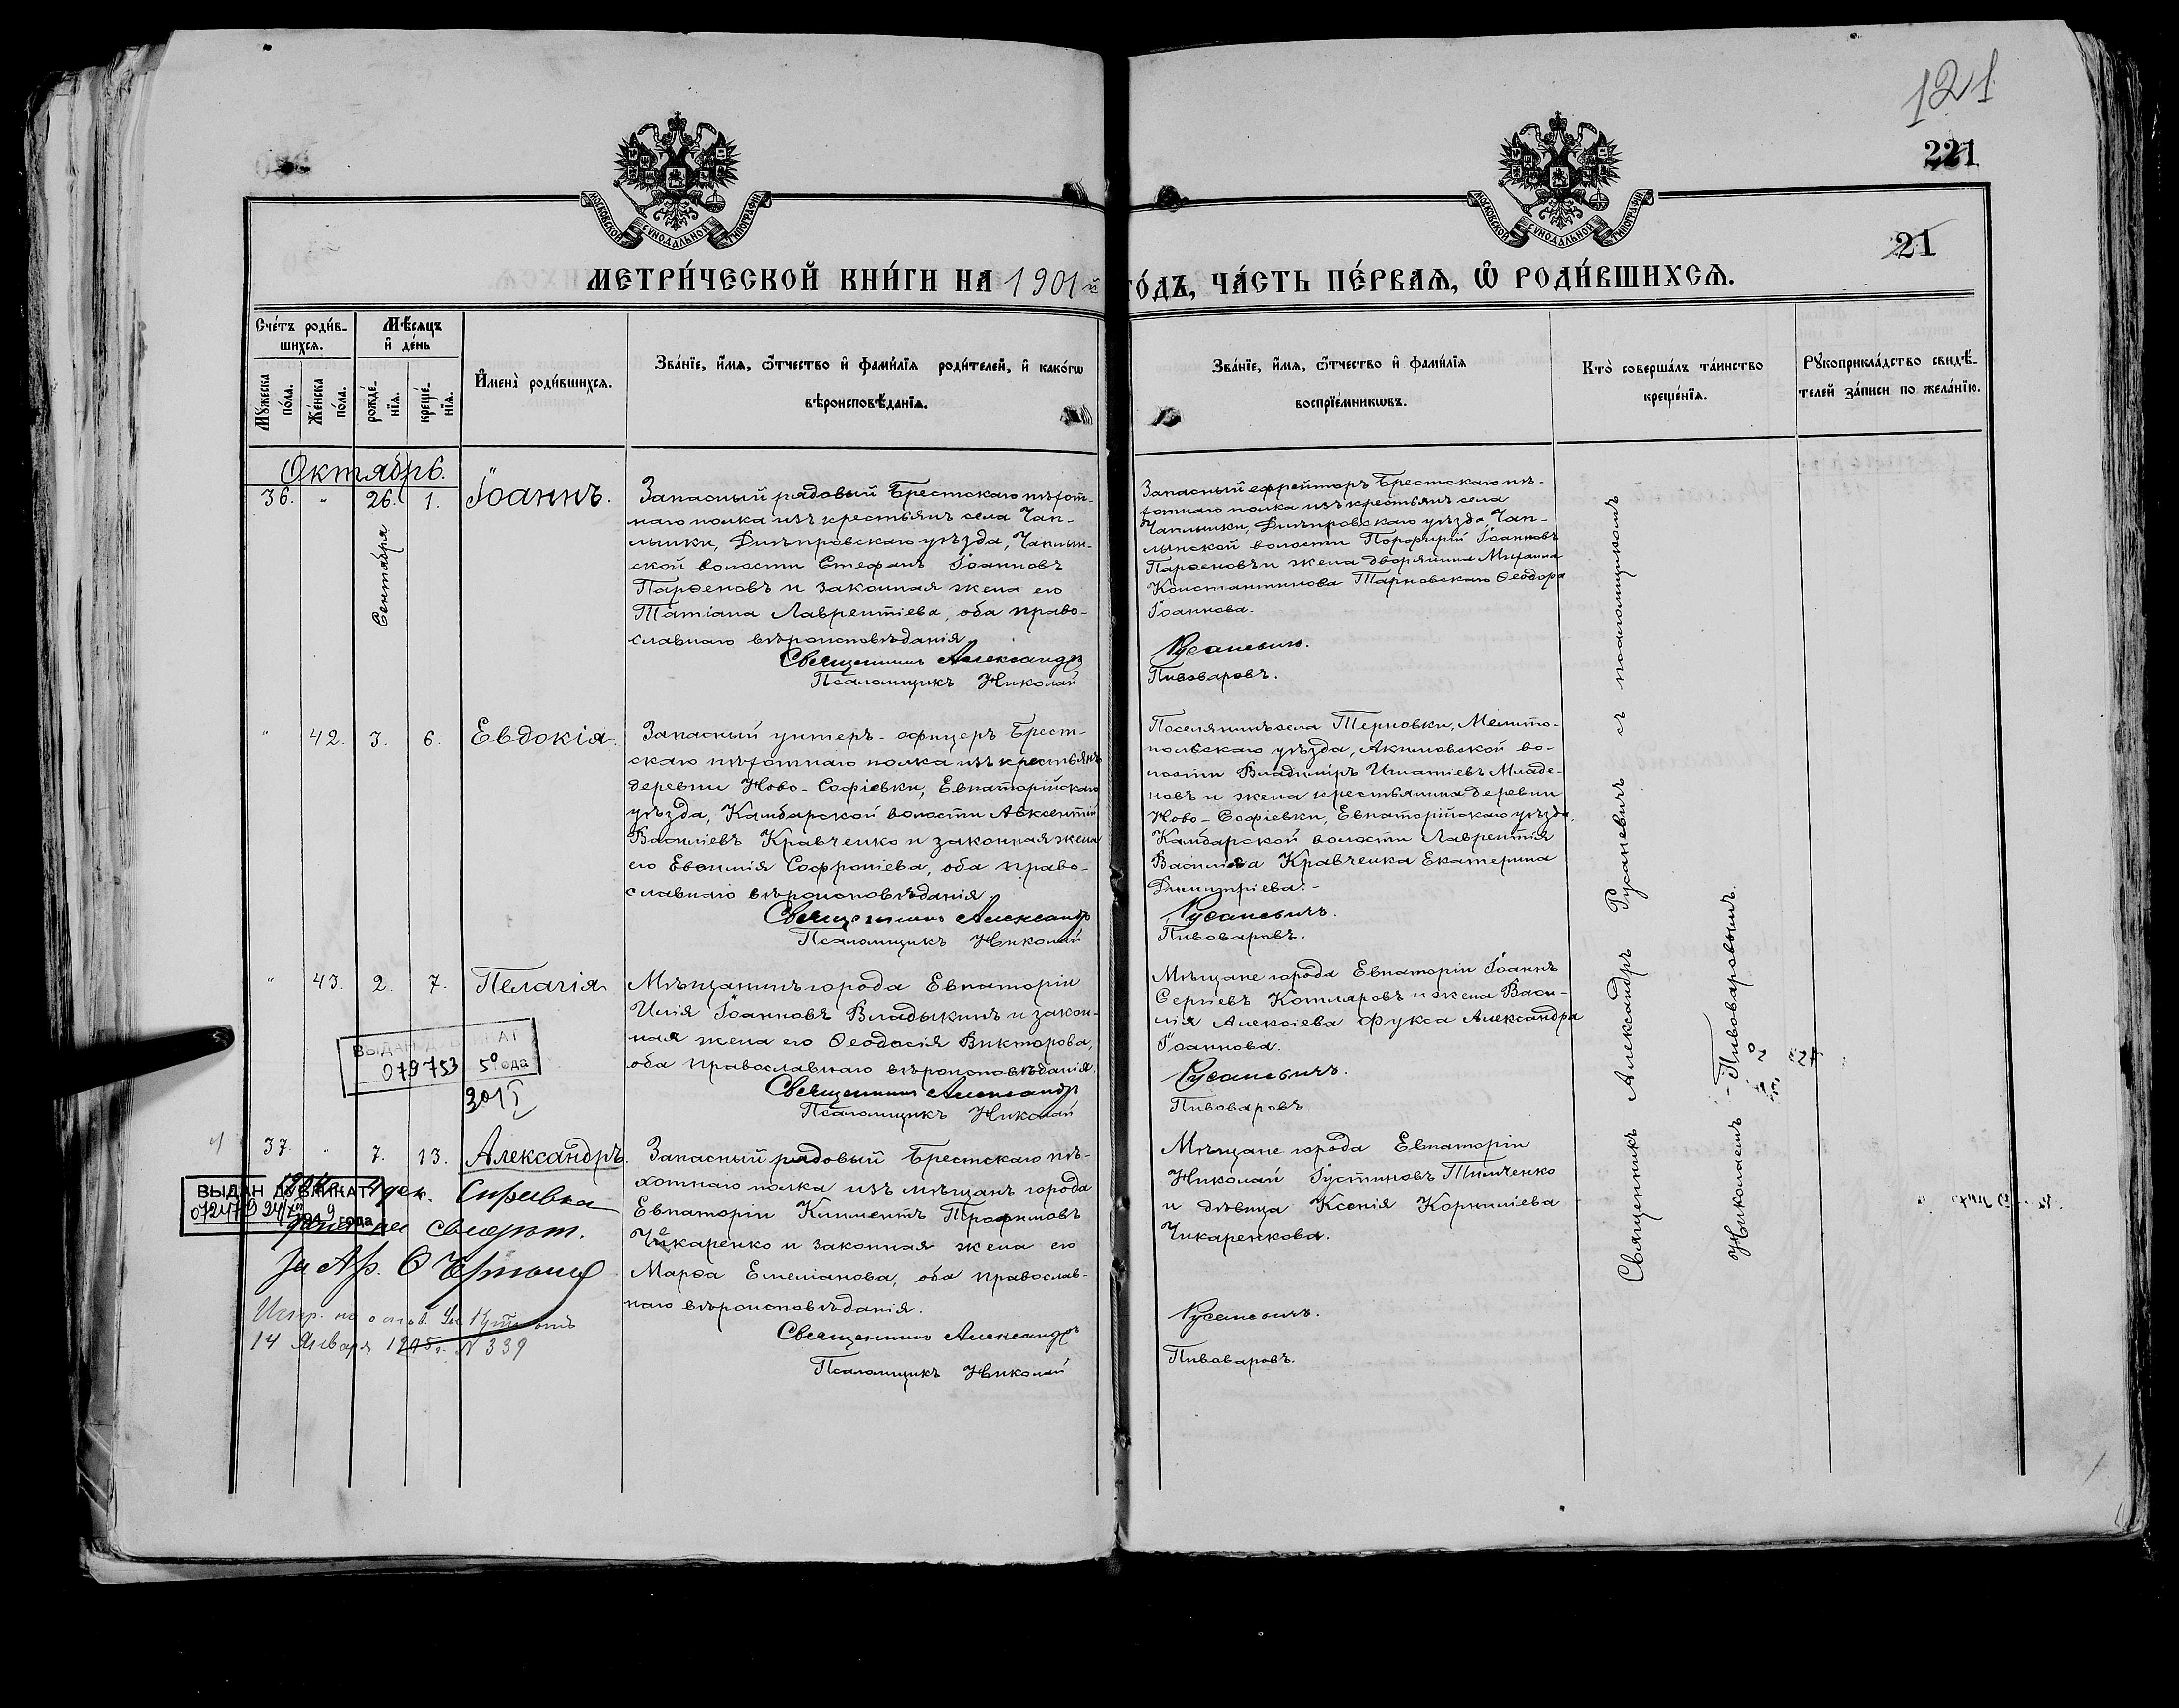 121
221
21
МОСКОВСКОЙ СѴНОДАЛЬНОЙ ТИПОГРАФІИ
МОСКОВСКОЙ СѴНОДАЛЬНОЙ ТИПОГРАФІИ
МЕТРИ́ЧЕСКОЙ КНИ́ГИ НА 1901й ГО́ДЪ, ЧА́СТЬ ПЕ́РВАѦ, Ѽ РОДИ́ВШИХСѦ.
Сче́тъ роди́в-
шихсѧ.
Мꙋ́жеска
по́ла.
Же́нска
по́ла.
Мѣ́сѧцъ
и҆ де́нь
рожде́-
нїѧ.
креще́-
нїѧ.
И҆мена̀ роди́вшихсѧ.
Зва́нїе, и҆́мѧ, ѻ҆́тчество и҆ фами́лїѧ роди́телей, и҆ како́гѡ
вѣроисповѣ́данїѧ.
Зва́нїе, и҆́мѧ, ѻ҆́тчество и҆ фами́лїѧ
воспрїе́мникѡвъ.
Кто̀ соверша́лъ та́инство
креще́нїѧ.
Рꙋкоприкла́дство свидѣ́-
телей за́писи по жела́нїю.
Октябрь.
36. " 26. 1. Іоаннъ.
Сентября
Запасный рядовый Брестскаго пѣхот-
наго полка изъ крестьянъ села Чап-
лынки, Днѣпровскаго уѣзда, Чаплын-
ской волости Стефанъ Іоанновъ
Парѳеновъ и законная жена его
Татіана Лаврентіева, оба право-
славнаго вѣроисповѣданія.
Священникъ Александръ
Псаломщикъ Николай
Запасный ефрейторъ Брестскаго пѣ-
хотнаго полка изъ крестьянъ села
Чаплынки, Днѣпровскаго уѣзда, Чап-
лынской волости Порфирій Іоанновъ
Парѳеновъ и жена дворянина Михаила
Константинова Тарновскаго Ѳеодора
Іоаннова.
Русаневичъ.
Пивоваровъ.
" 42. 3. 6. Евдокія.
Запасный унтеръ-офицеръ Брест-
скаго пѣхотнаго полка изъ крестьянъ
деревни Ново-Софіевки, Евпаторійскаго
уѣзда, Камбарской волости Авксентій
Василіевъ Кравченко и законная жена
его Евѳимія Софроніева, оба право-
славнаго вѣроисповѣданія.
Священникъ Александръ
Псаломщикъ Николай
Поселянинъ села Терновки, Мелито-
польскаго уѣзда, Акимовской во-
лости Владиміръ Игнатіевъ Младе-
новъ и жена крестьянина деревни
Ново-Софіевки, Евпаторійскаго уѣзда,
Камбарской волости Лаврентія
Василіева Кравченка Екатерина
Димитріева.-
Русаневичъ.
Пивоваровъ.
" 43. 2. 7. Пелагія
Мѣщанинъ города Евпаторіи
Илія Іоанновъ Владыкинъ и закон-
ная жена его Ѳеодосія Викторова,
оба православнаго вѣроисповѣданія.
Священникъ Александръ
Псаломщикъ Николай
Мѣщане города Евпаторіи Іоаннъ
Сергіевъ Котляровъ и жена Васи-
лія Алексіева Фукса Александра
Іоаннова.
Русаневичъ.
Пивоваровъ.
079753 50 года
37. " 7. 13. Александръ.
Запасный рядовый Брестскаго пѣ-
хотнаго полка изъ мѣщанъ города
Евпаторіи Климентъ Трофимовъ
Чикаренко и законная жена его
Марѳа Емеліанова, оба православ-
наго вѣроисповѣданія.
Священникъ Александръ
Псаломщикъ Николай
Мѣщане города Евпаторіи
Николай Іустиновъ Тимченко
и дѣвица Ксенія Корниліева
Чикаренкова.
Русаневичъ.
Пивоваровъ.
ВЫДАН ДУБЛИКАТ
года
Справка
14 Января 1905 г. N 339
Священникъ Александръ Русаневичъ съ псаломщикомъ
Николаемъ Пивоваровымъ.